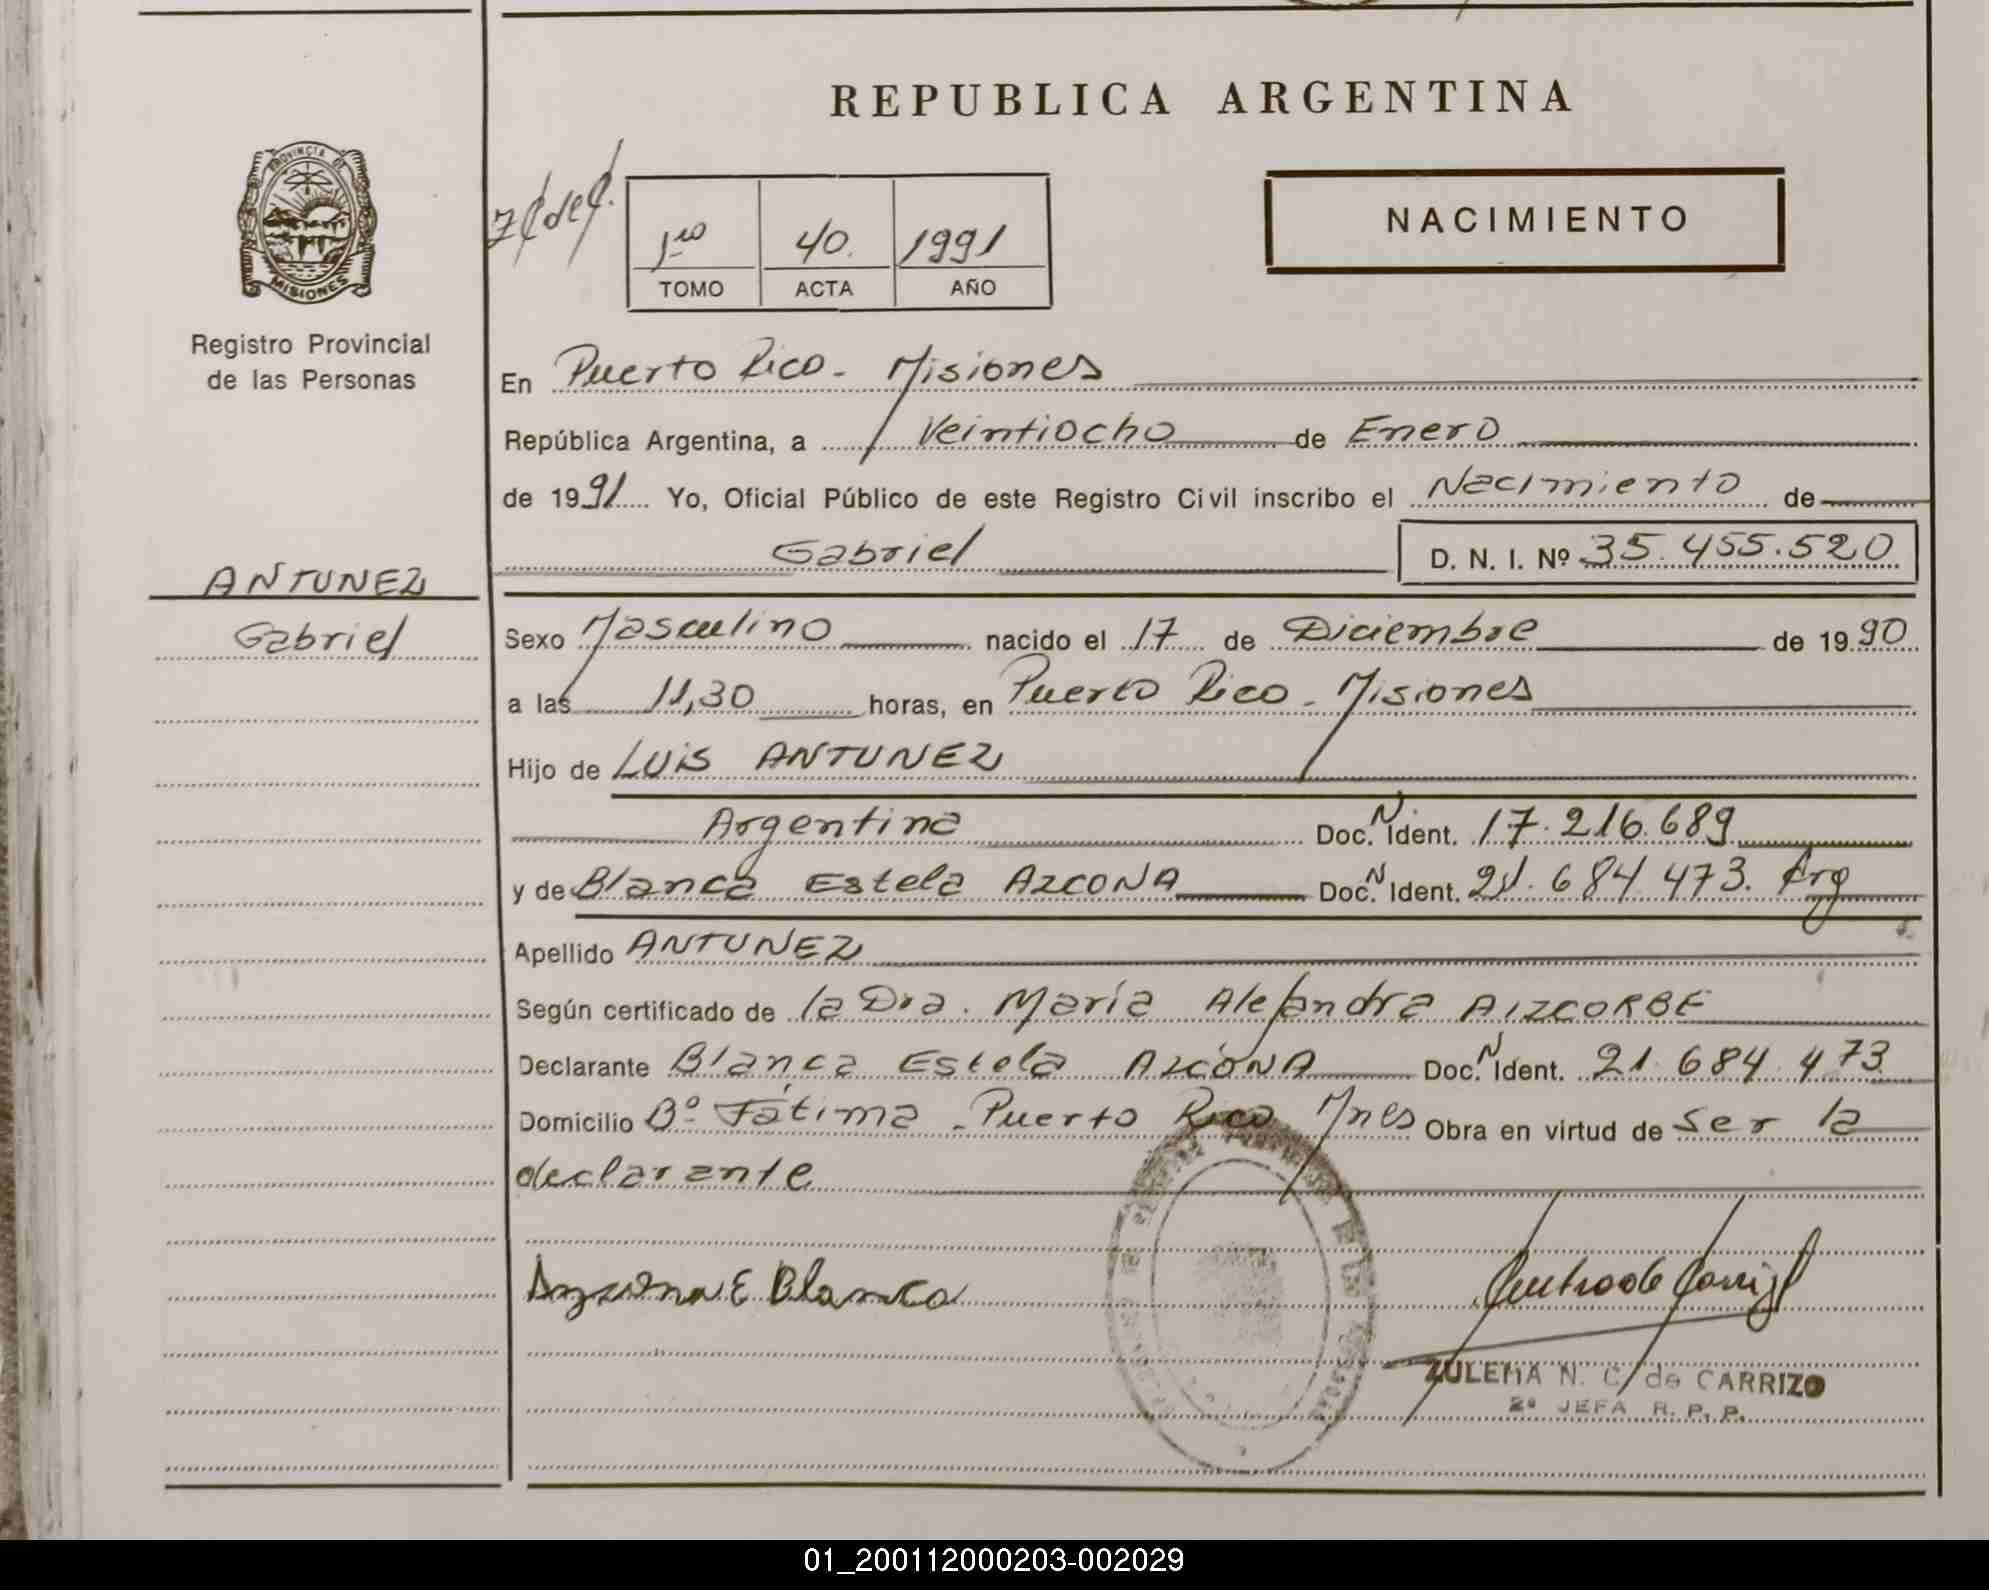 REPUBLICA ARGENTINA
PROVINCIA DE
MISIONES
Registro Provincial
de las Personas
NACIMIENTO
1ro 40. 1991
TOMO ACTA AÑO
En Puerto Rico - Misiones
República Argentina, a Veintiocho de Enero
de 1991 Yo, Oficial Público de este Registro Civil inscribo el Nacimiento de
Gabriel D. N. I. Nº 35.455.520
ANTUNEZ
Gabriel
Sexo Masculino nacido el 17 de Diciembre de 1990
a las 11,30 horas, en Puerto Rico - Misiones
Hijo de LUIS ANTUNEZ
Argentina Doc. N Ident. 17.216.689
y de Blanca Estela AZCONA Doc. N Ident. 21.684.473. Arg
Apellido ANTUNEZ
Según certificado de la Dra. María Alejandra AIZCORBE
Declarante Blanca Estela AZCONA Doc. N Ident. 21.684.473
Domicilio Bº Fátima - Puerto Rico Mnes Obra en virtud de ser la
declarante
E Blanca
ZULEMA N. C. de CARRIZO
2ª JEFA R. P. P.
01_200112000203-002029